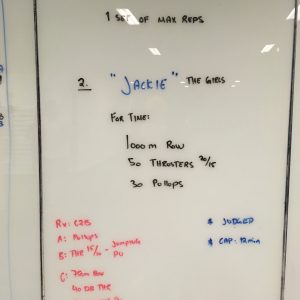 1 SET OF MAX REPS
2. "JACKIE" - THE GIRLS
FOR TIME:
1000m ROW
50 THRUSTERS 20/15
30 PULLUPS
RX: C2B
A: PULLUPS
B: THR 15/10 - JUMPING PU
C: 750m ROW
40 DB THR
* JUDGED
* CAP: 12min